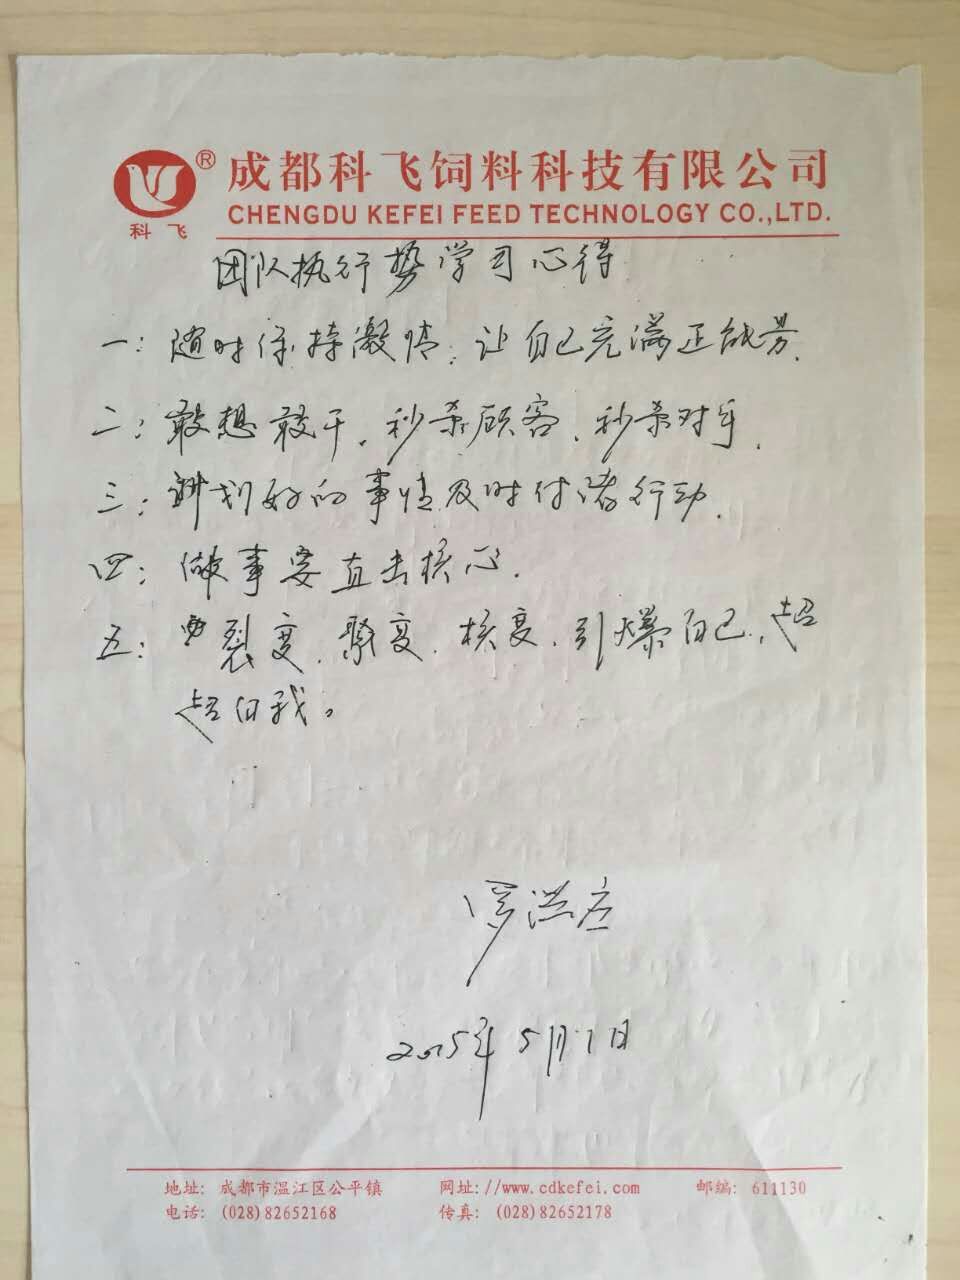 ®
成都科飞饲料科技有限公司
科飞
CHENGDU KEFEI FEED TECHNOLOGY CO.,LTD.
团队执行势学习心得
一：随时保持激情，让自己充满正能量.
二：敢想敢干，秒杀顾客、秒杀对手.
三：计划好的事情及时付诸行动.
四：做事要直击核心.
五：裂变、聚变、核变、引爆自己，超
超自我。
罗洪
2015年5月1日
地址: 成都市温江区公平镇 网址://www.cdkefei.com 邮编: 611130
电话: (028)82652168 传真: (028)82652178